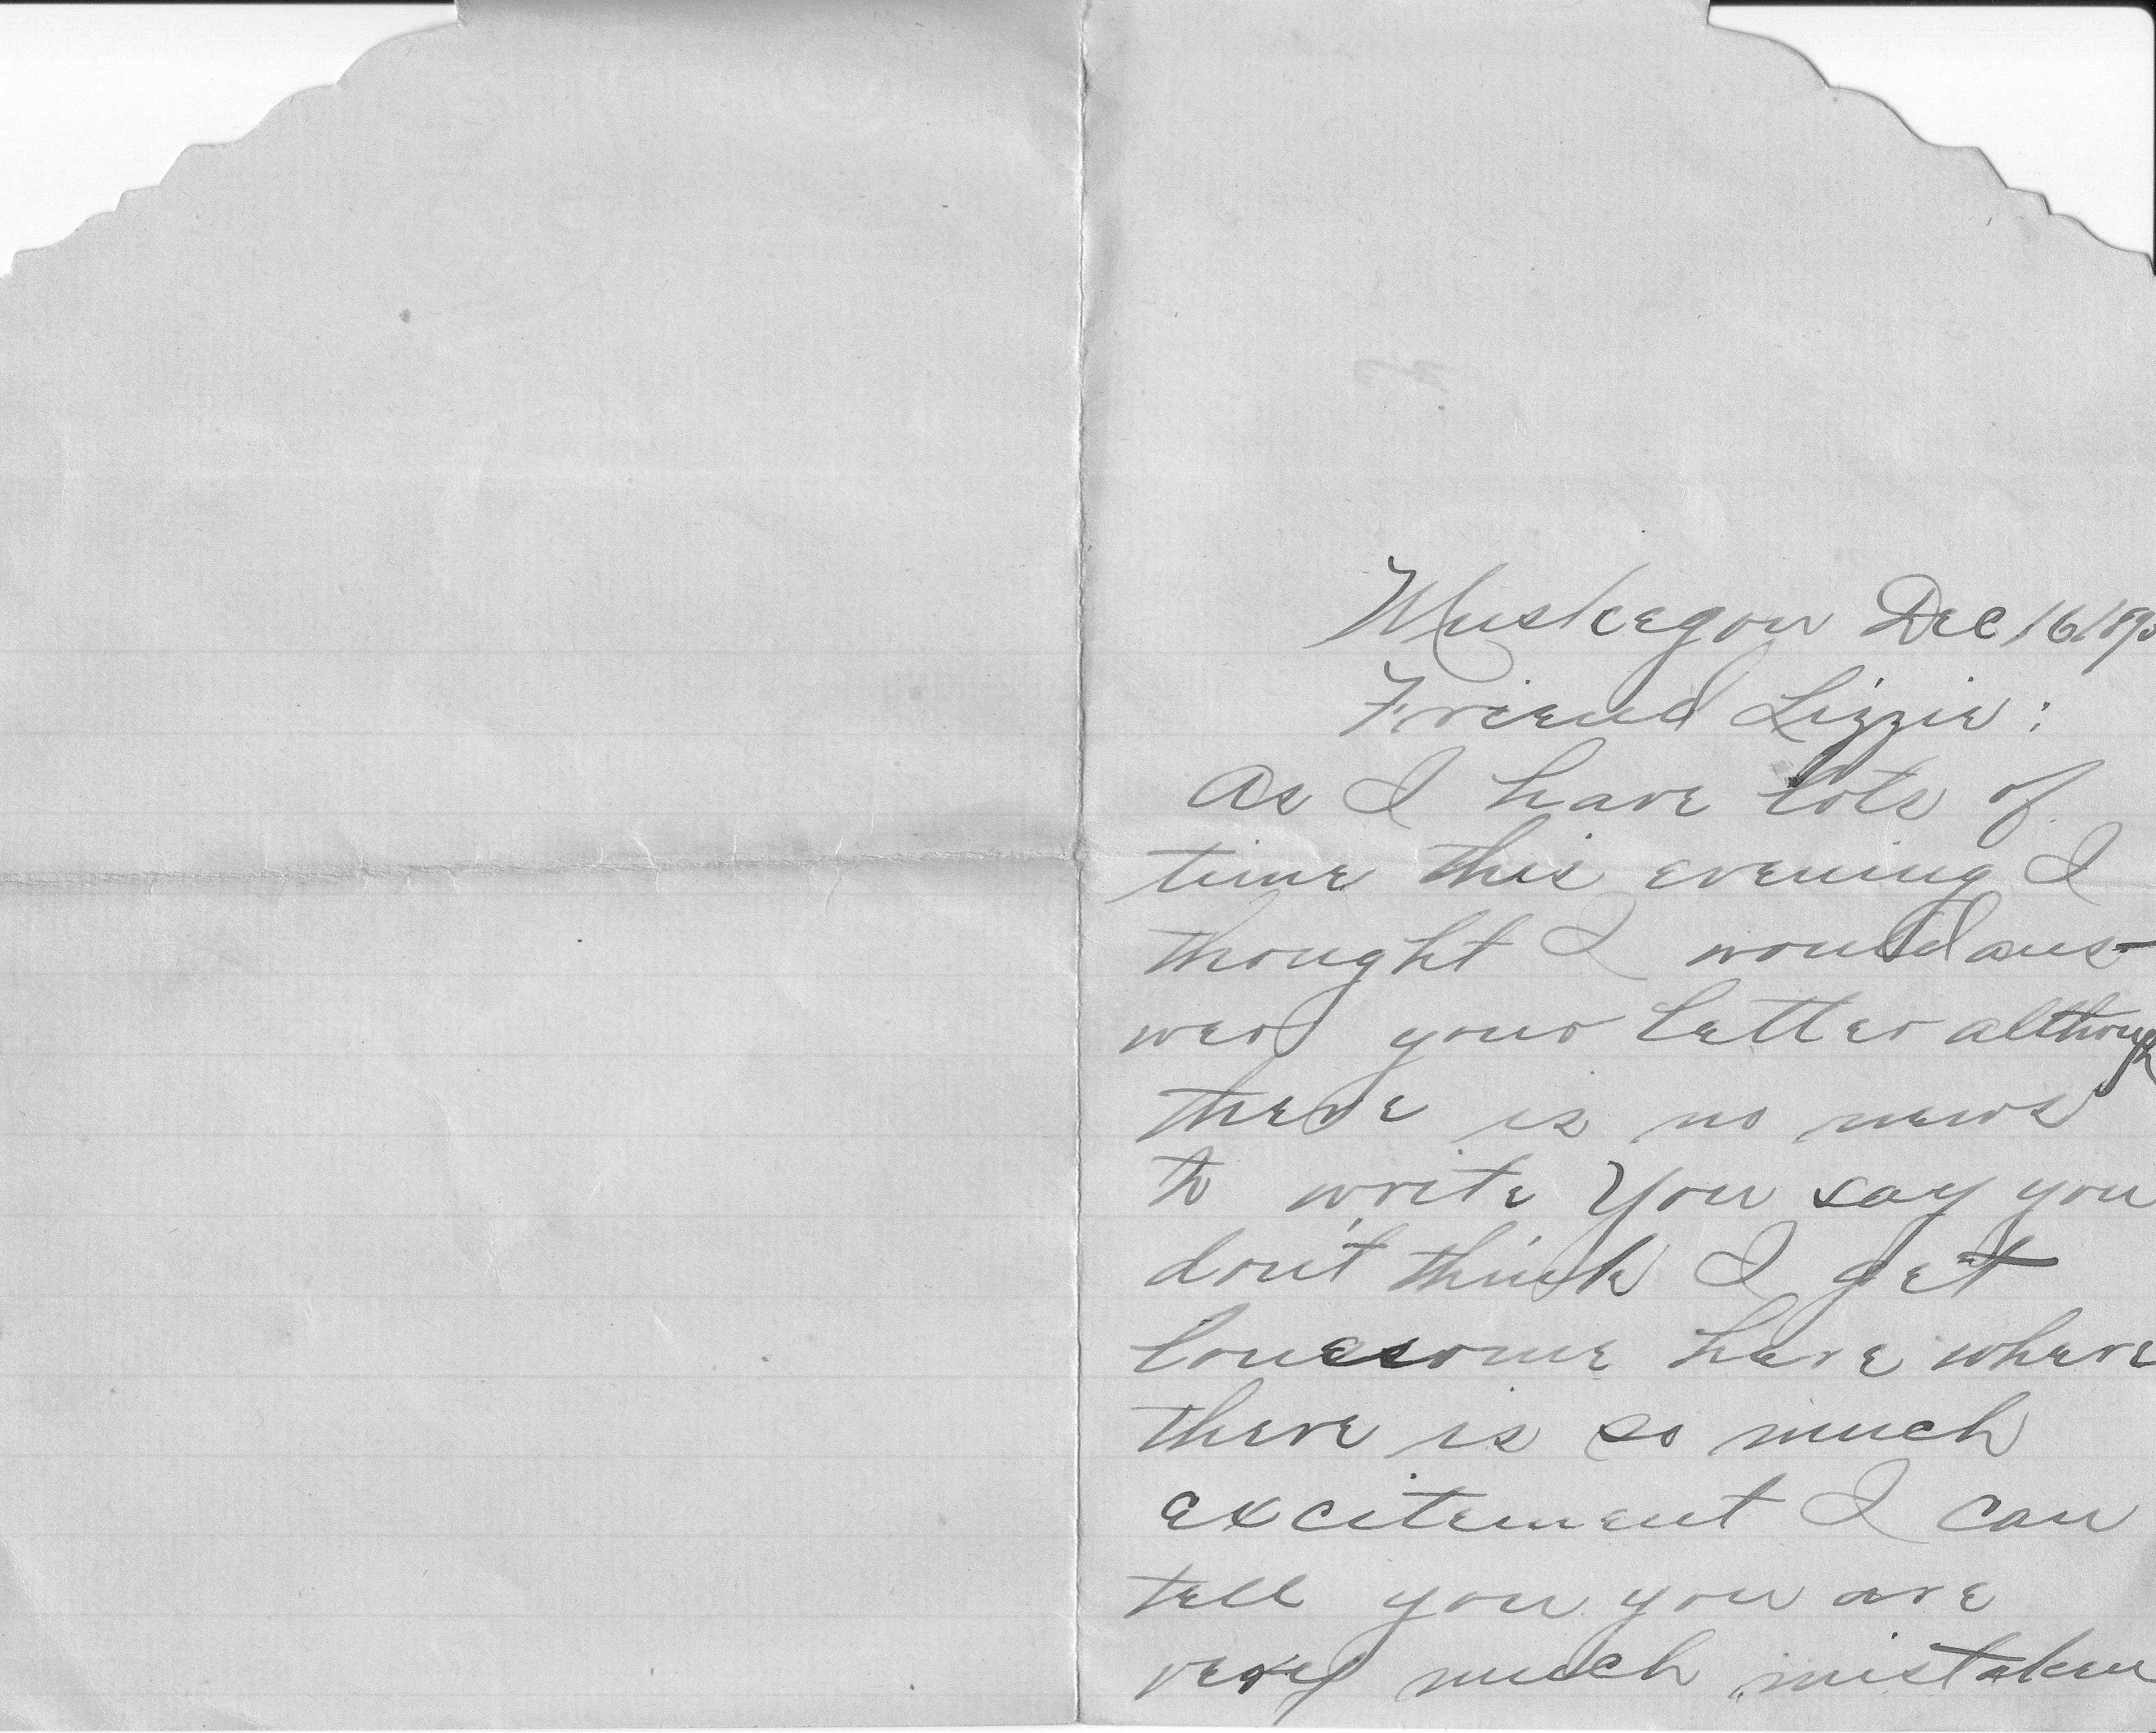 Muskegon Dec 16 1890
Friend Lizzie:
As I have lots of
time this evening I
thought I would ans-
wer your letter although
there is no news
to write You say you
don't think I get
lonesome here where
there is so much
excitement I can
tell you you are
very much mistaken